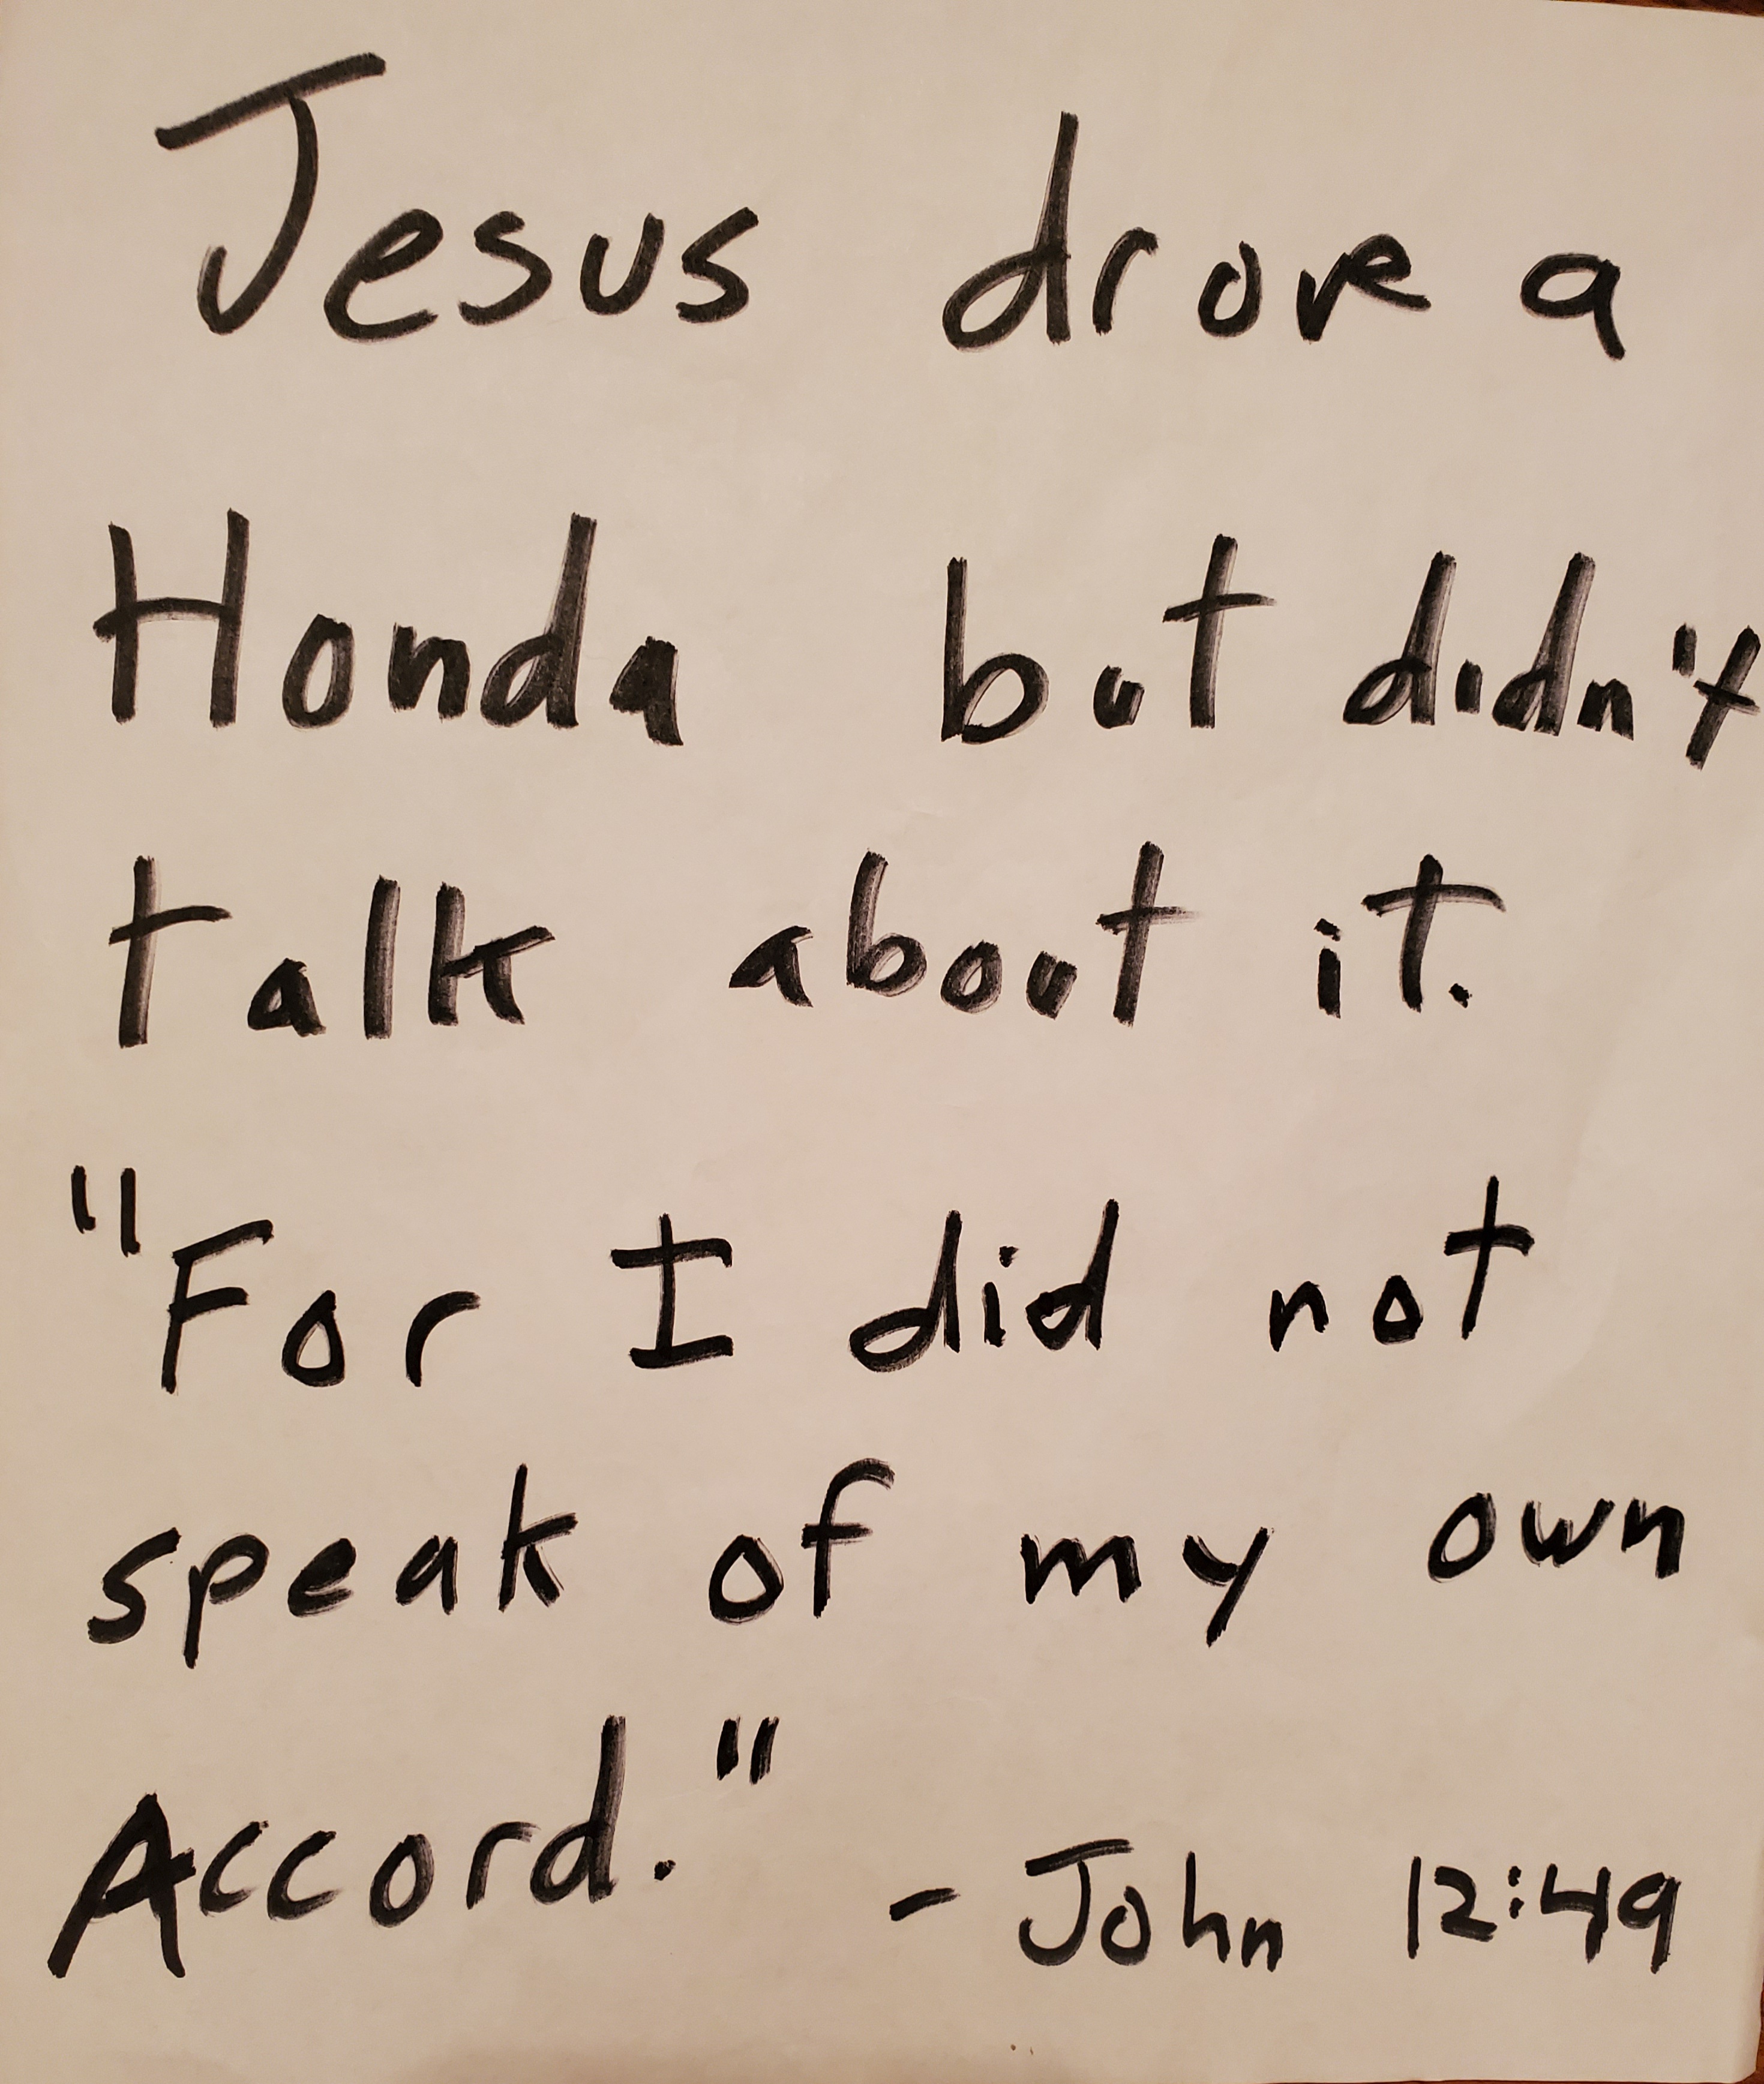 Jesus drove a
Honda but didn't
talk about it.
"For I did not
speak of my own
Accord." - John 12:49